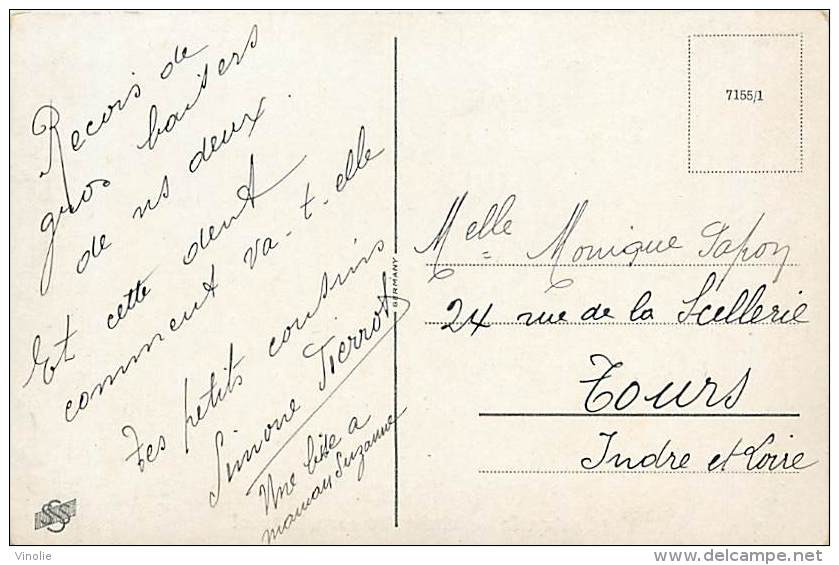 Recois de
gros baisers
de ns deux.
Et cette dent
comment va-t-elle
Tes petits cousins
Simone Pierrot
Une bise a
maman Suzanne
GERMANY
7155/1
Melle Monique
24 rue de la Scellerie
Tours
Indre et Loire
SSS
Vinolie
delcampe.net